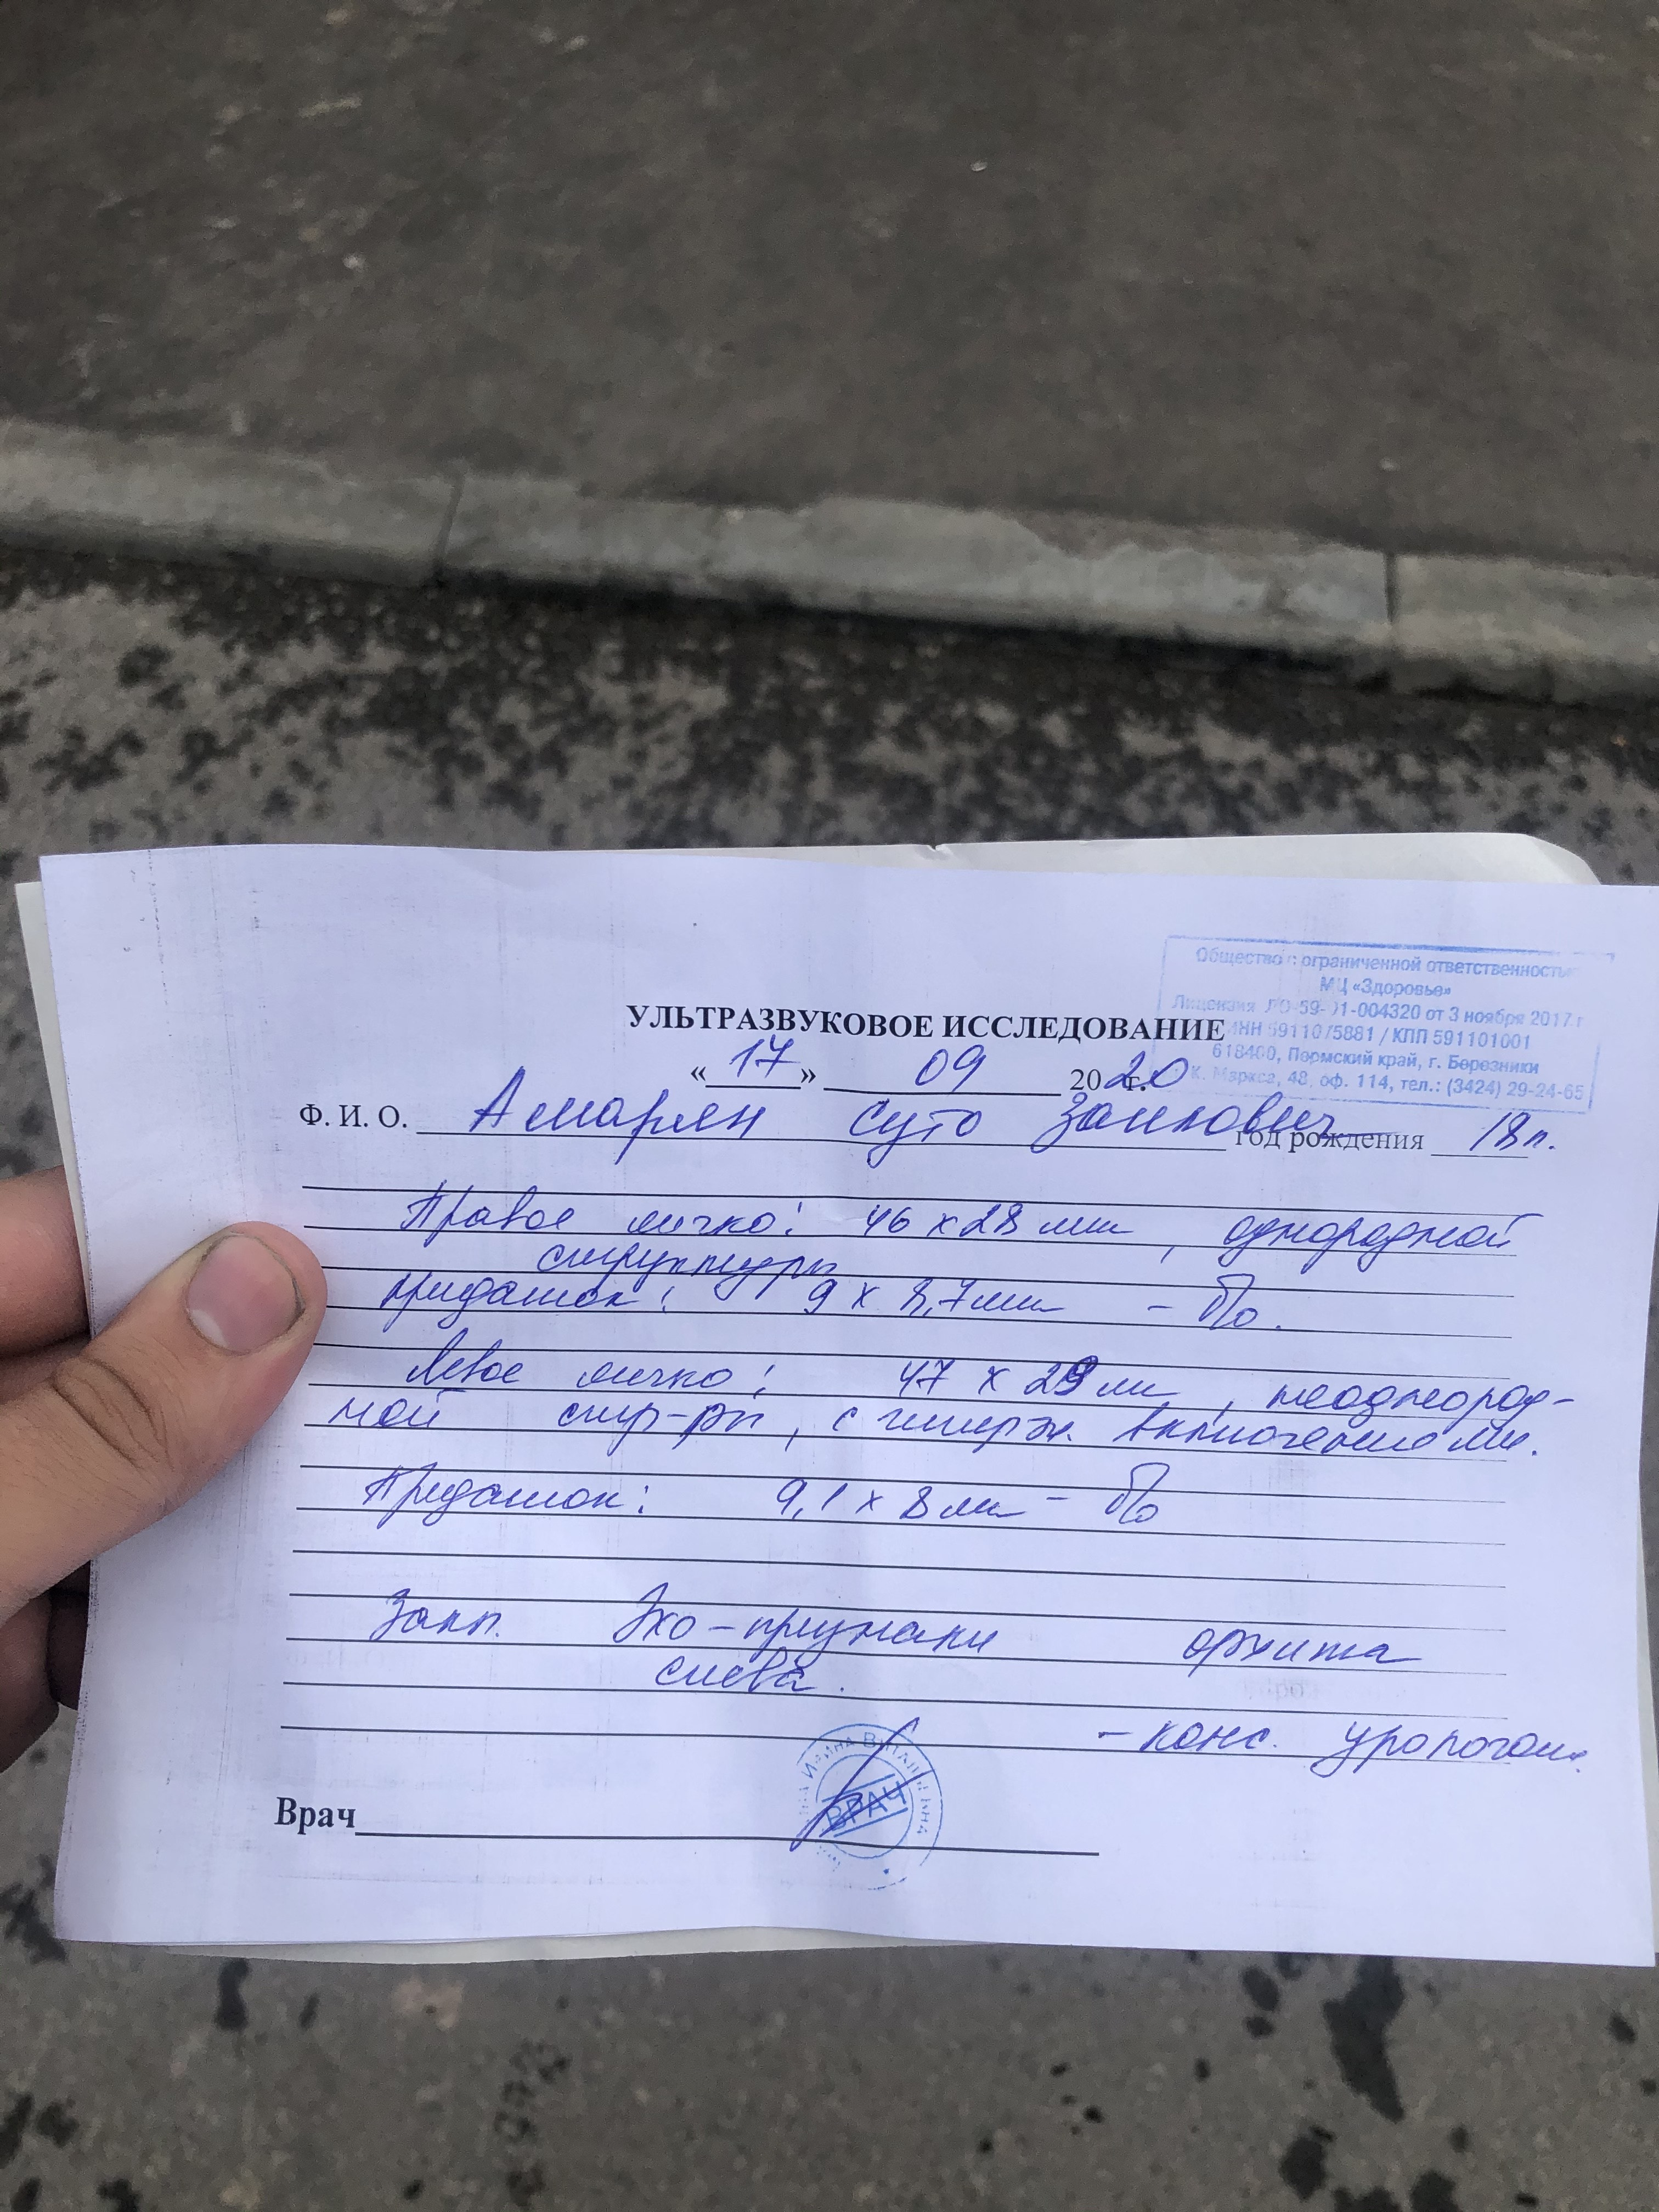 Общество с ограниченной ответственностью
МЦ «Здоровье»
Лицензия ЛО-59-01-004320 от 3 ноября 2017 г
ИНН 5911075881 / КПП 591101001
618400, Пермский край, г. Березники
К. Маркса, 48, оф. 114, тел.: (3424) 29-24-65
УЛЬТРАЗВУКОВОЕ ИССЛЕДОВАНИЕ
« 17 » 09 2020 г.
Ф. И. О. Амарян Суто Заилович год рождения 18 л.
Правое яичко: 46 х 28 мм, однородной
структуры
Придаток: 9 х 8,7 мм – б/о.
Левое яичко: 47 х 29 мм, неоднород-
ной стр-ры, с гиперэх. включениями.
Придаток: 9,1 х 8 мм – б/о
Закл. Эхо-признаки орхита
слева.
– конс. уролога.
Врач
ИРИНА ВИТАЛЬЕВНА
ВРАЧ